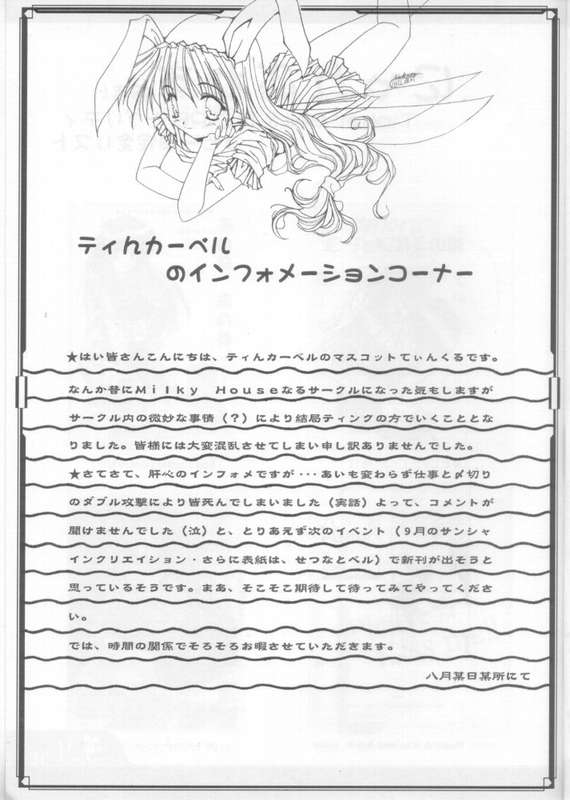 ティんカーベル
のインフォメーションコーナー
★はい皆さんこんにちは、ティんカーベルのマスコットてぃんくるです。
なんか昔にＭｉｌｋｙ　Ｈｏｕｓｅなるサークルになった気もしますが
サークル内の微妙な事情（？）により結局ティンクの方でいくこととな
りました。皆様には大変混乱させてしまい申し訳ありませんでした。
★さてさて、肝心のインフォメですが・・・あいも変わらず仕事と〆切り
のダブル攻撃により皆死んでしまいました（実話）よって、コメントが
聞けませんでした（泣）と、とりあえず次のイベント（９月のサンシャ
インクリエイション・さらに表紙は、せつなとベル）で新刊が出そうと
思っているそうです。まあ、そこそこ期待して待ってみてやってくださ
い。
では、時間の関係でそろそろお暇させていただきます。
八月某日某所にて